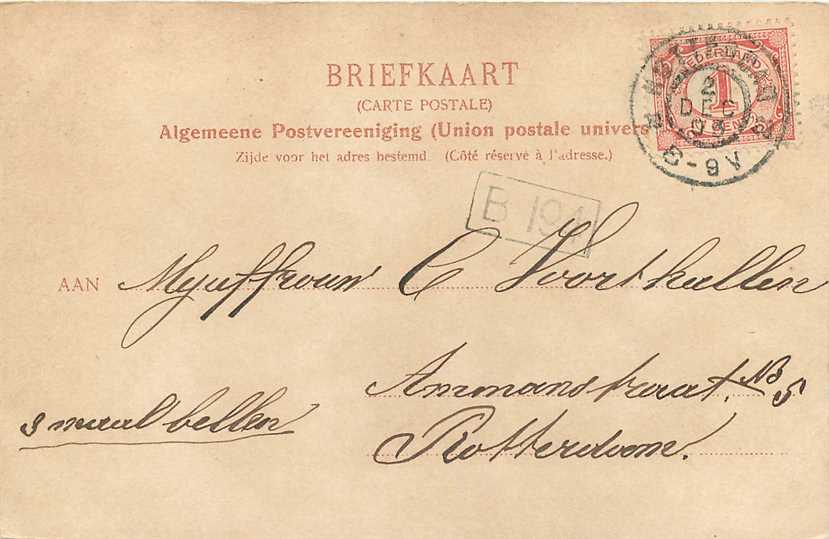 BRIEFKAART
(CARTE POSTALE)
Algemeene Postvereeniging (Union postale univers
Zijde voor het adres bestemd. (Côté réservé à l'adresse.)
NEDERLAND
1
CENT
2
DEC
03
8-9V
B 194
AAN Mejuffrouw C Voorthullen
Ammanstraat. No 5
3 maal bellen
Rotterdam.